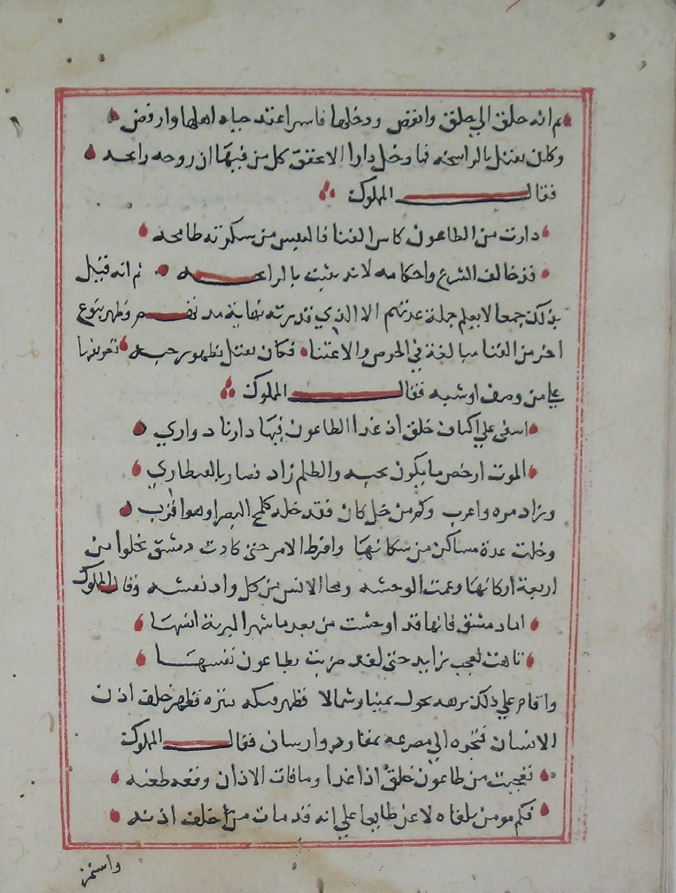 ثم انه حلق الي جلق وانقض ودخلها فاسرا عقد حياه اهلها وارفض
وكان يعتل بالراسخه فما دخل دارا الا عتق كل من فيها ان روحه رايحه
فقال المملوك
دارت من الطاعون كاس الفنا فالنفس من سكرته طافحه
قد خالف الشرع واحكامه لانه يثبت بالرايحه ثم انه قتل
بذلك جمعا لا يعلم جملة عدتهم الا الذي قدر ته نهاية مد تهم وظهر بنوع
اخر من الفنا مبالغة في الحرص والاعتنا فكان يعتل بظهور حبه
علي من وصف او شبه فقال المملوك
اسفي علي اكناف جلق اذ غدا الطاعون فيها دارنا دواري
الموت ارخص ما يكون بحبه والظلم زاد فصار بالقنطاري
وزاد مره واعرب وكم من خل كان فقد خله كلمح البصر او هو اقرب
وخلت عدة مساكن من سكانها وافرط الامر حتي كادت دمشق تخلوا من
اربعة اركانها وعمت الوحشه ومحا الانس من كل واد نعشه وقال المملوك
اما دمشق فانها قد اوحشت من بعد ما شهد البرية انسها
تاهت بعجب زايد حتي لقد ضربت بطاعون نفسها
واقام علي ذلك برهة يجول يمينا وشمالا فظهر خلف اذن
الانسان فتجره الي مصرعه فقال المملوك
تعجبت من طاعون جلق اذ غدا وما فات الاذان وقعة طعنه
فكم مومن تلقاه لا عن طايعا علي انه قد مات من خلف اذنه
واستمر